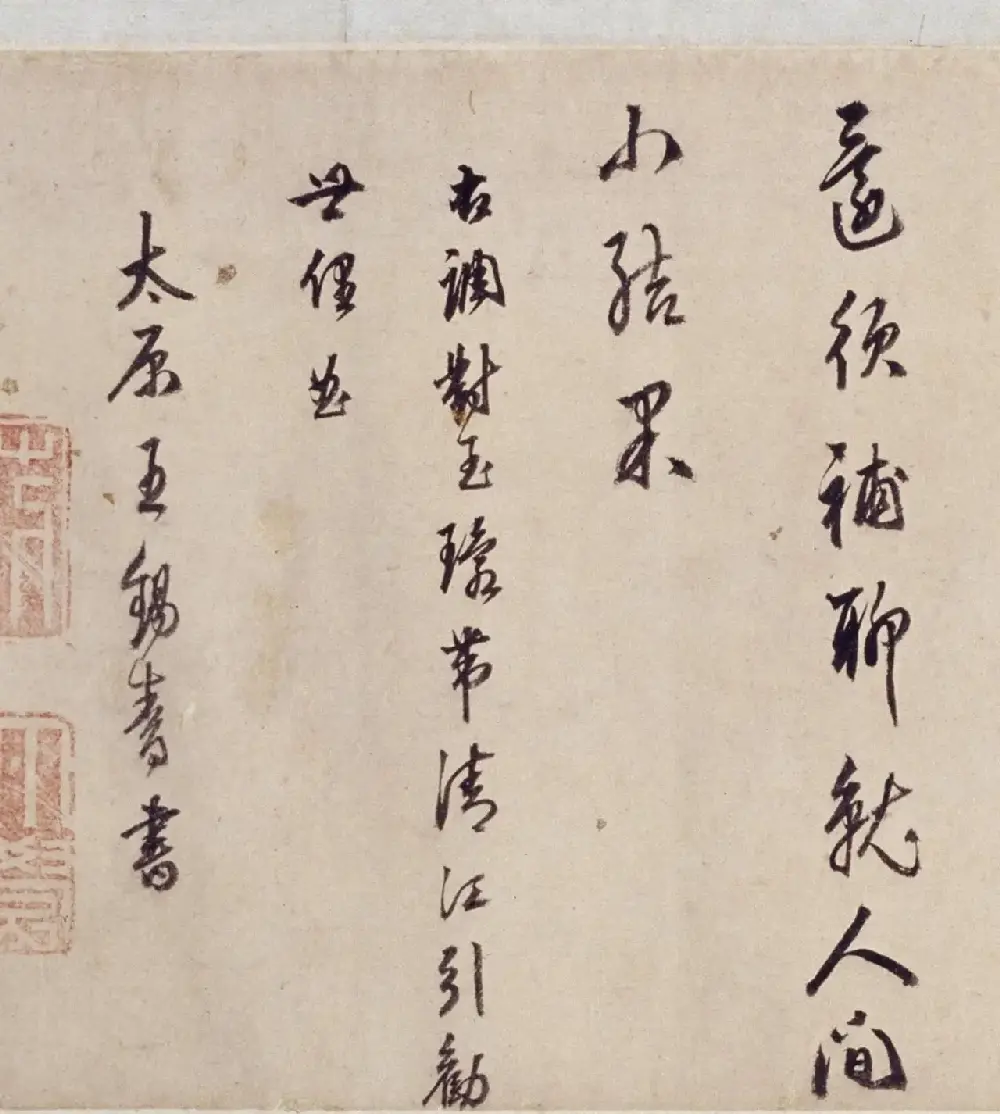 還須補聊就人間
小結果
右調對玉環帶清江引勸
世俚
太原王錫書